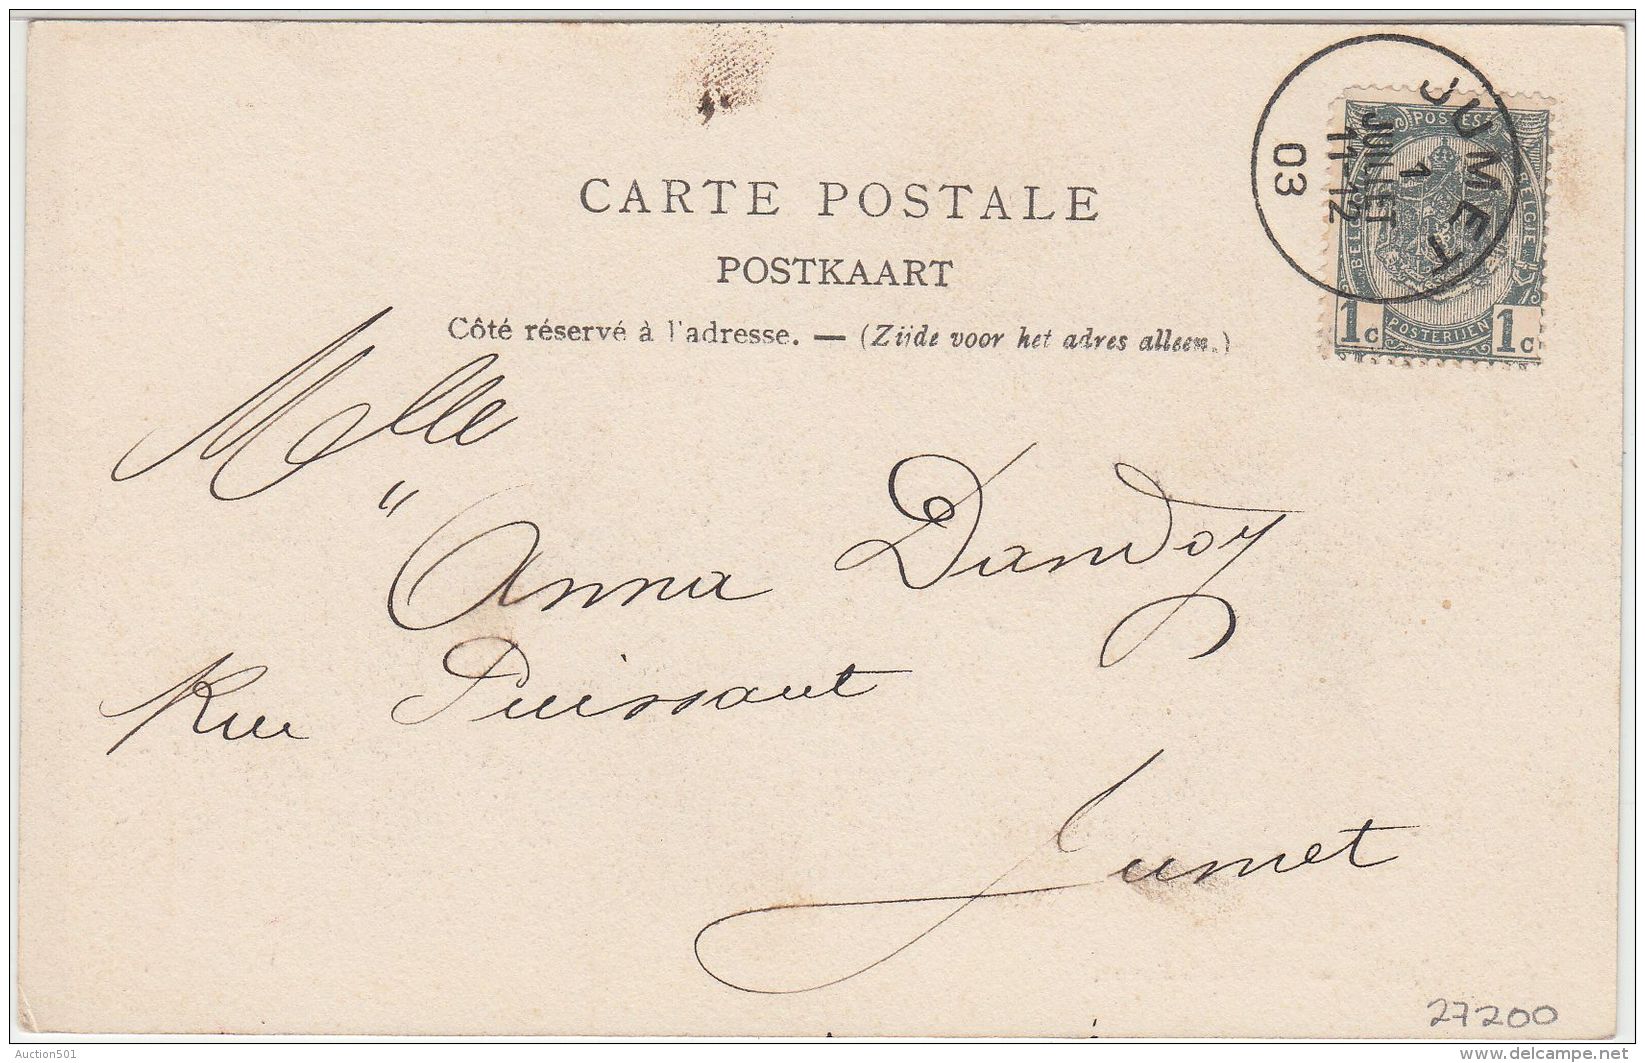 CARTE POSTALE
POSTKAART
Côté réservé à l'adresse. — (Zijde voor het adres alleen.)
JUMET
1
JUILLET
11-12
03
POSTES
BELGIQUE BELGIË
1c POSTERIJEN 1c
Melle
" Anna Dandoy
Rue Puissant
Jumet
27200
Auction501
delcampe.net